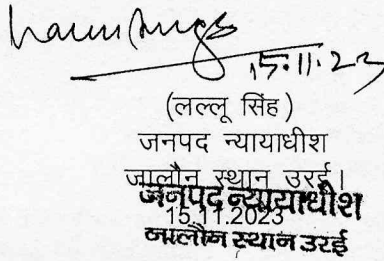 15.11.23
(लल्लू सिंह)
जनपद न्यायाधीश
जालौन स्थान उरई।
जनपद न्यायाधीश
15.11.2023
जालौन स्थान उरई